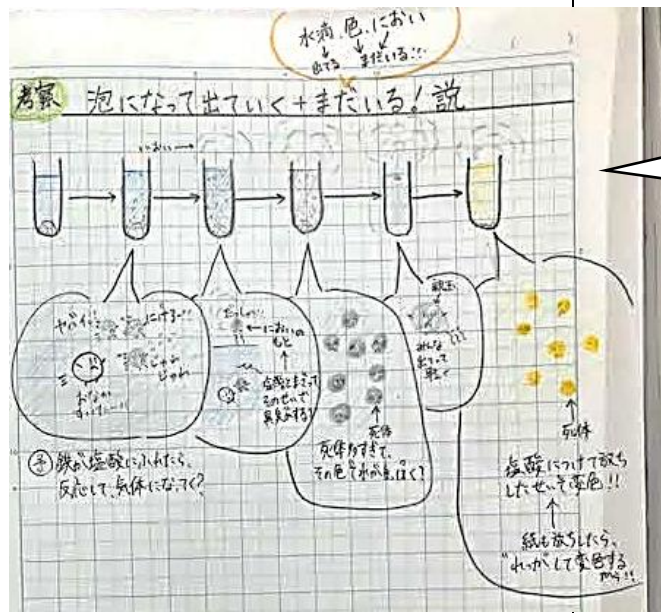 水滴、色、におい
出てる まだいる!!
考察 泡になって出ていく+まだいる!説
におい→
ヤバイ!! にげろー!!
しゅわ
しゅわ
おなか
だっしゅつ!!
←においの
もと
塩酸とまざって
そのせいで
異臭がする?
死体
死体多すぎて、
その色でそれが黒っぽく?
親玉
みんな
出てって
死体
塩酸につけて放ち
したせいで変色!!
紙も放ちしたら、
"れっか"して変色する
から!!
予 鉄が塩酸にふれたら、
反応して、気体になってく?